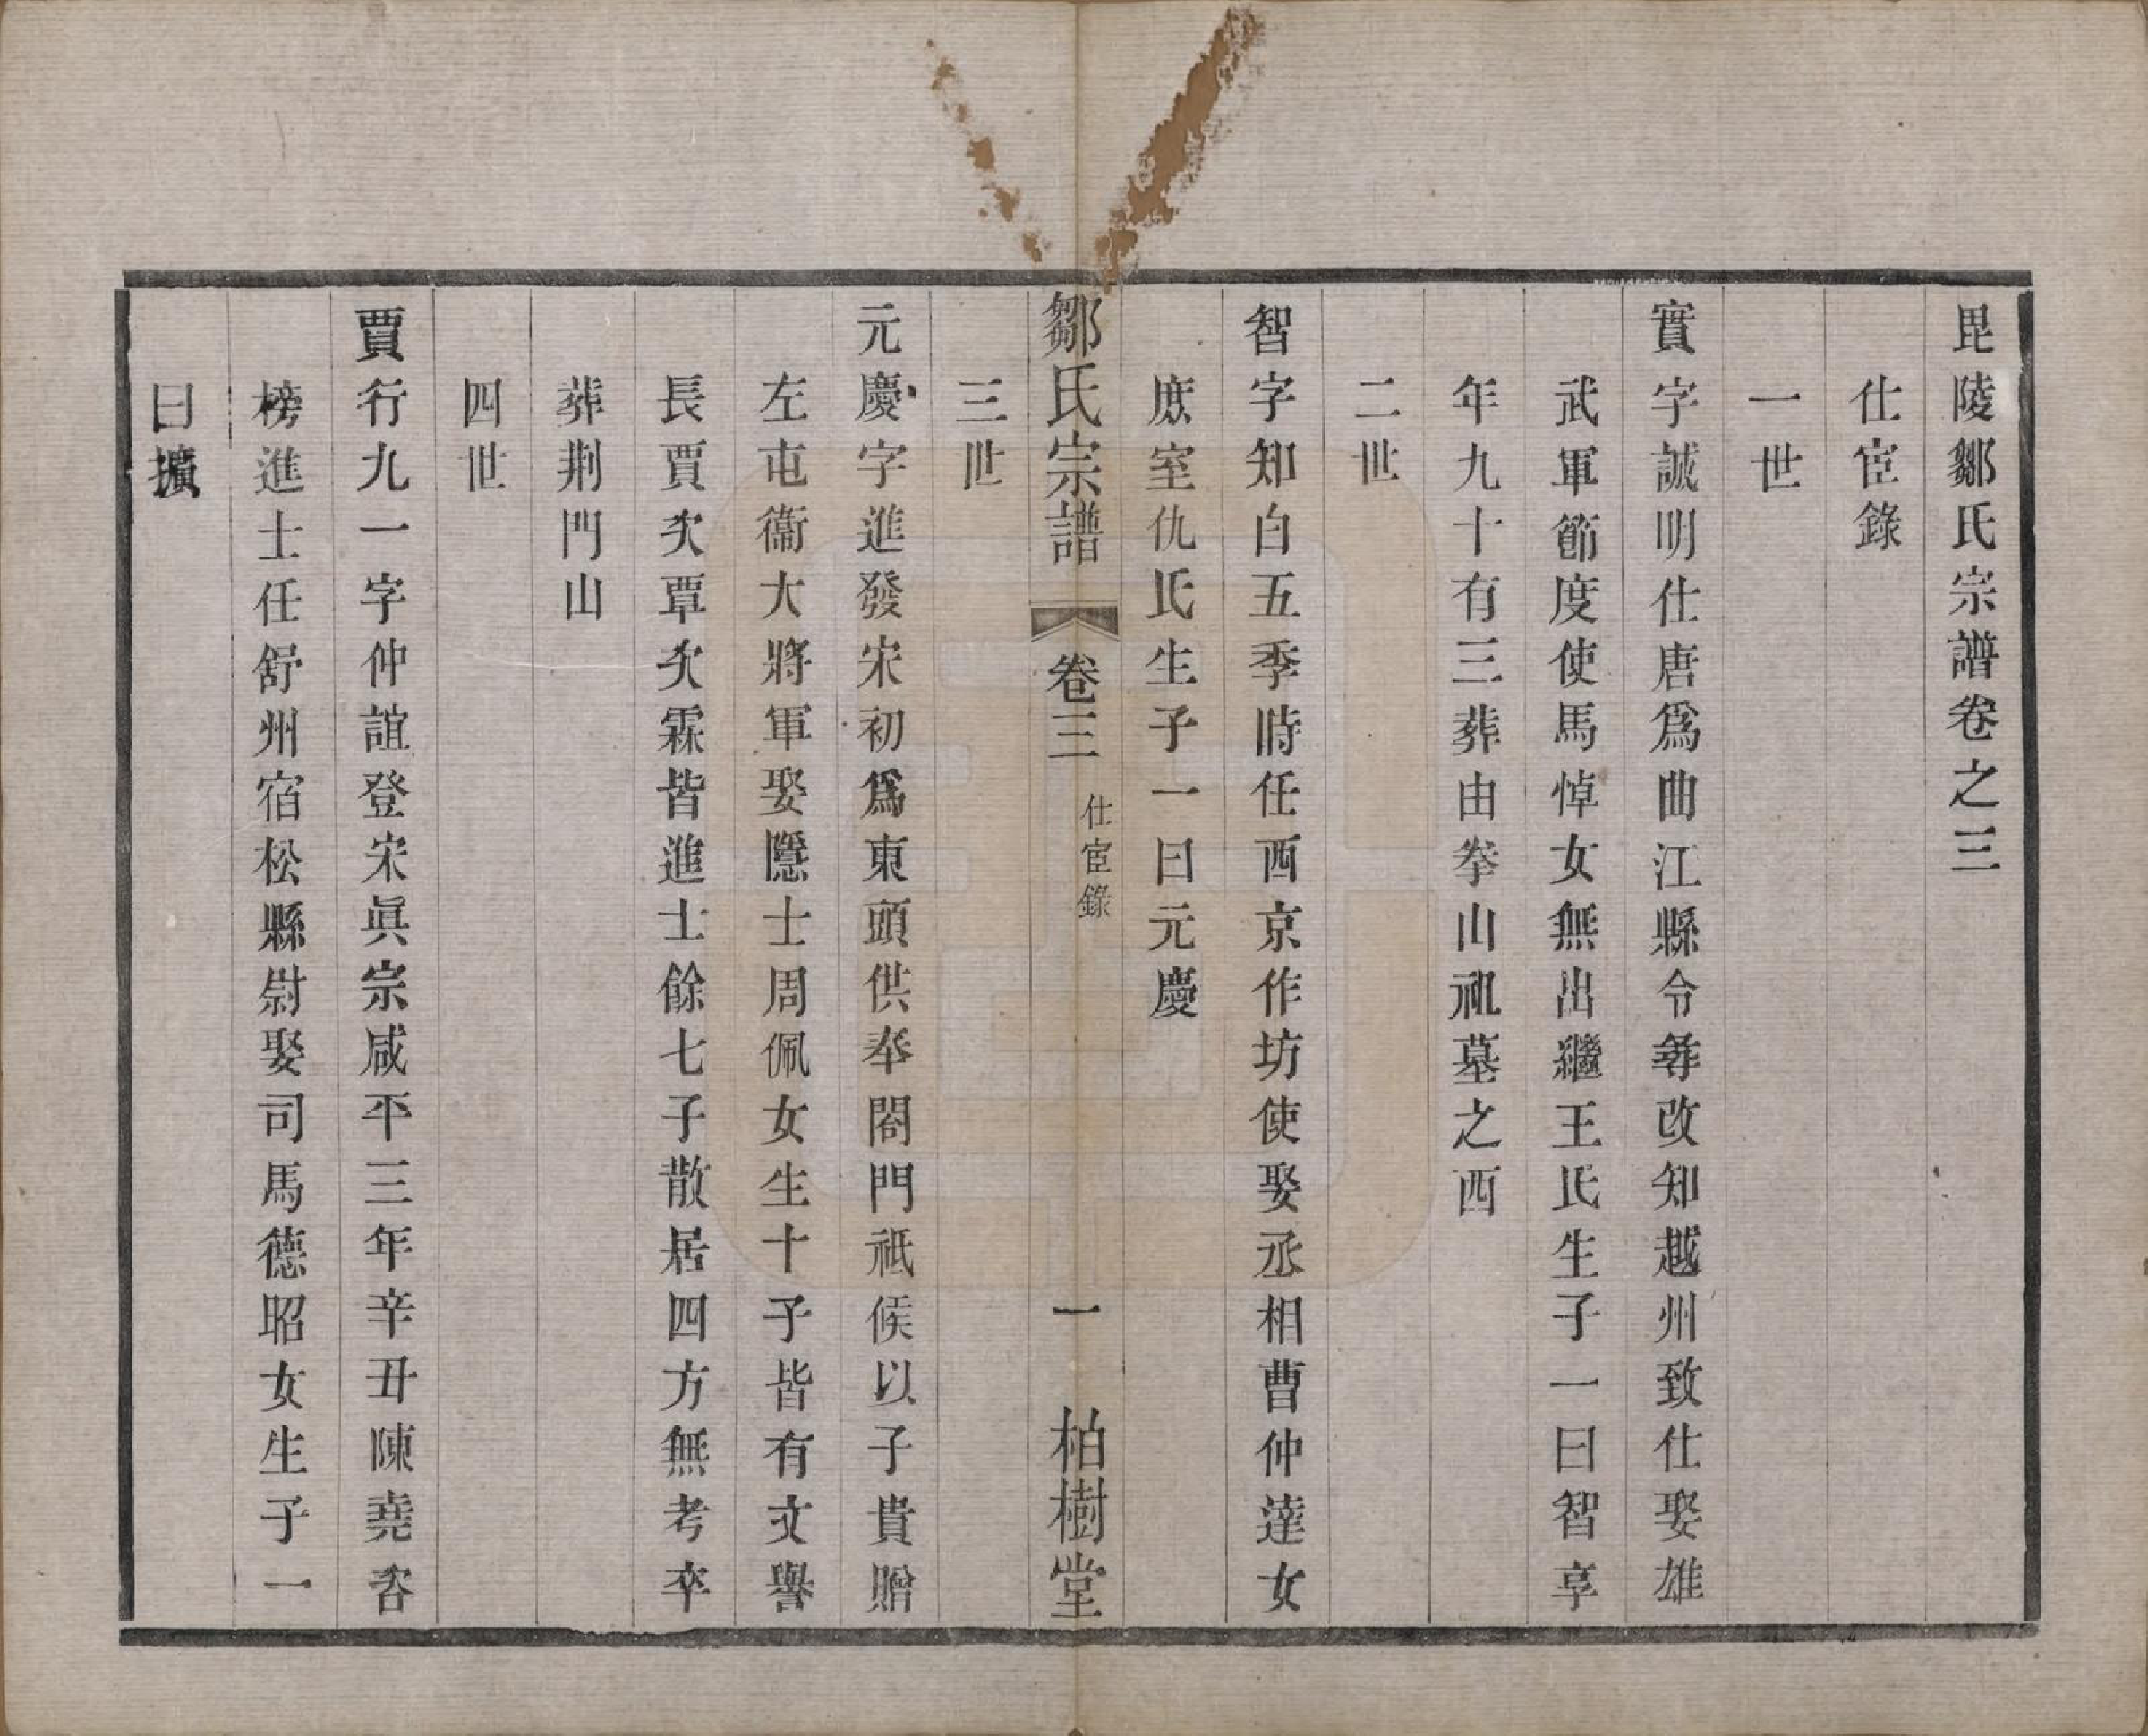 毘陵鄒氏宗譜卷之三
仕宦錄
一世
實字誠明仕唐爲曲江縣令尋改知越州致仕娶雄
武軍節度使馬悼女無出繼王氏生子一曰智享
年九十有三葬由拳山祖墓之西
二世
智字知白五季時任西京作坊使娶丞相曹仲達女
庶室仇氏生子一曰元慶
鄒氏宗譜 卷三 仕宦錄 一 柏樹堂
三世
元慶字進發宋初爲東頭供奉閤門祗候以子貴贈
左屯衞大將軍娶隱士周佩女生十子皆有文譽
長賈次覃次霖皆進士餘七子散居四方無考卒
葬荆門山
四世
賈行九一字仲誼登宋眞宗咸平三年辛丑陳堯咨
榜進士任舒州宿松縣尉娶司馬德昭女生子一
曰擴